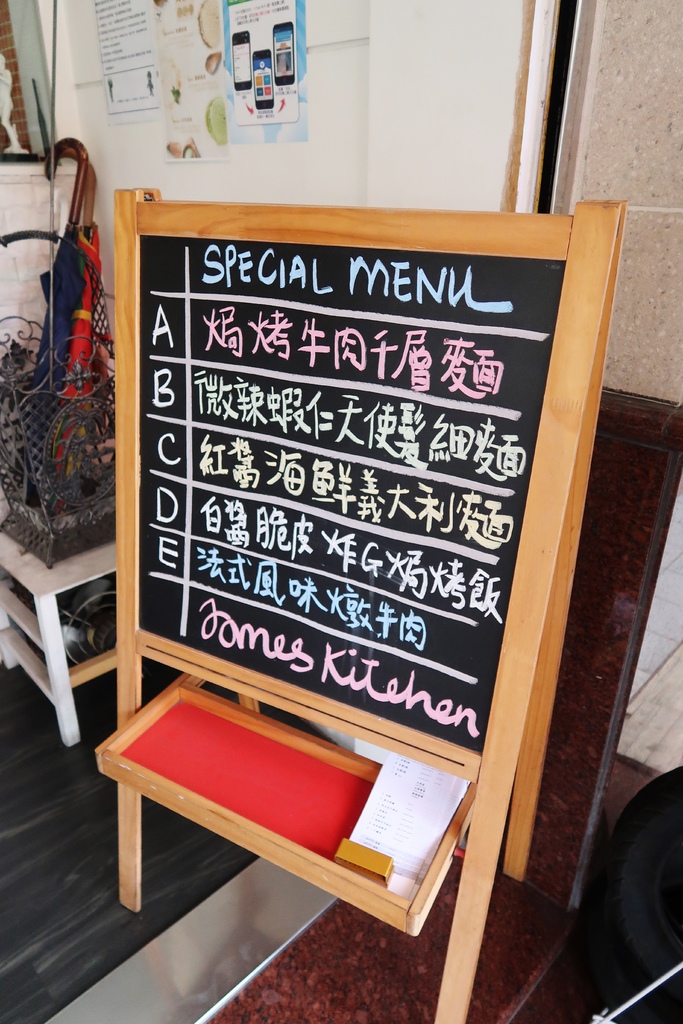 SPECIAL MENU
A 焗烤牛肉千層麵
B 微辣蝦仁天使髮細麵
C 紅醬海鮮義大利麵
D 白醬脆皮炸G焗烤飯
E 法式風味燉牛肉
James Kitchen